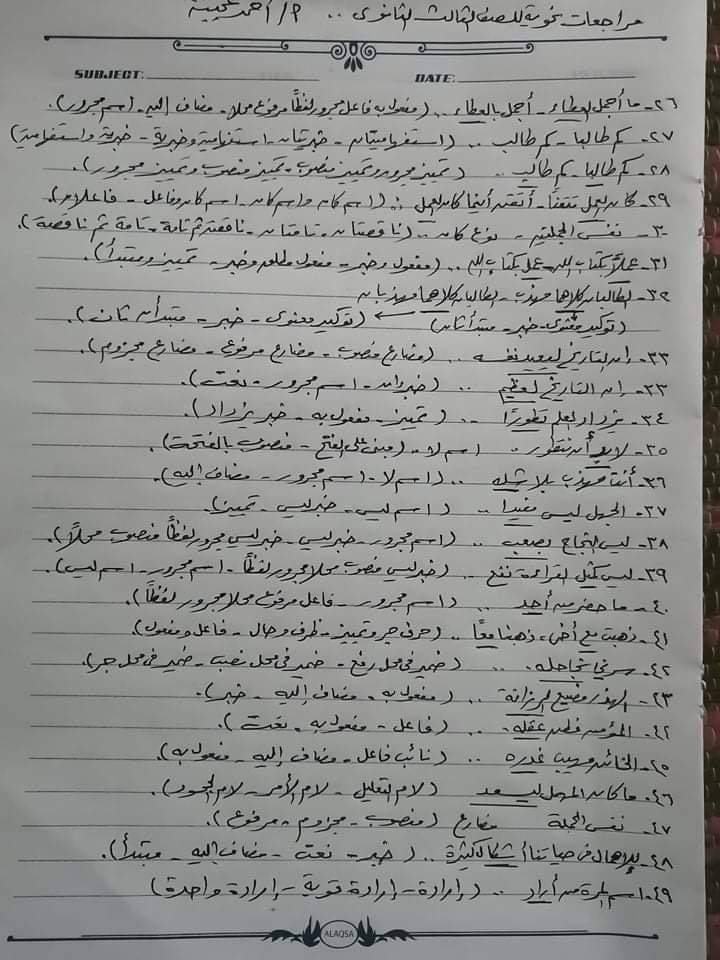 مراجعات نحوية للصف الثالث الثانوى .. أ/ أحمد
SUBJECT: DATE:
٢٦- ما أجمل العطاء - أجمل بالعطاء .. (مفعول به فاعل مجرور لفظًا مرفوع محلًا - مضاف إليه - اسم مجرور).
٢٧- كم طالبا - كم طالب .. (استفهاميتان - خبريتان - استفهامية وخبرية - خبرية واستفهامية)
٢٨- كم طالبا - كم طالب .. (تمييز مجرور وتمييز منصوب - تمييز منصوب وتمييز مجرور).
٢٩- كان العمل متقنًا - أتقنه أينما كان العمل .. (اسم كان واسم كان - اسم كان وفاعل - فاعلان).
٣٠- نفس الجملتين - نوع كان .. (ناقصتان - تامتان - ناقصة ثم تامة - تامة ثم ناقصة).
٣١- عملًا بكتاب الله - عمل بكتاب الله .. (مفعول وخبر - مفعول مطلق وخبر - تمييز ومبتدأ).
٣٢- الطالبان كلاهما مهذب - الطالبان كلاهما مهذبان
(توكيد معنوى - خبر - مبتدأ ثان) (توكيد معنوى - خبر - مبتدأ ثان).
٣٣- إن التاريخ ليعيد نفسه .. (مضارع منصوب - مضارع مرفوع - مضارع مجزوم).
٣٣- إن التاريخ لعظيم .. (خبر إن - اسم مجرور - نعت).
٣٤- يزداد العلم تطورًا .. (تمييز - مفعول به - خبر يزداد).
٣٥- لابد أن نتطور .. اسم لا - (مبنى على الفتح - منصوب بالفتحة).
٣٦- أنت مهذب بلا شك .. (اسم لا - اسم مجرور - مضاف إليه).
٣٧- الجهل ليس مفيدًا .. (اسم ليس - خبر ليس - تمييز)
٣٨- ليس النجاح بصعب .. (اسم مجرور - خبر ليس - خبر ليس مجرور لفظًا منصوب محلًا).
٣٩- ليس كمثل القراءة نفع .. (خبر ليس منصوب محلا مجرور لفظًا - اسم مجرور - اسم ليس).
٤٠- ما حضر من أحد .. (اسم مجرور - فاعل مرفوع محلا مجرور لفظًا).
٤١- ذهبت مع أخى، ذهبنا معًا .. (حرف جر وتمييز - ظرف وحال - فاعل ومفعول).
٤٢- سرني نجاحك .. (ضمير فى محل رفع - ضمير فى محل نصب - ضمير فى محل جر).
٢٣- الهذر مضيع الرزانة .. (مفعول به - مضاف إليه - خبر).
٤٢- المؤمن فطن عقله .. (فاعل - مفعول به - نعت).
٢٥- الخائن مهيب غدره .. (نائب فاعل - مضاف إليه - مفعول به).
٤٦- ما كان المهمل ليسعد (لام التعليل - لام الأمر - لام الجحود).
٤٧- نفس الجملة مضارع (منصوب - مجزوم - مرفوع).
٤٨- للإهمال فى حياتنا أشكال كثيرة .. (خبر - نعت - مضاف إليه - مبتدأ).
٤٩- اسم المرة من أراد .. (إرادة - إرادة قوية - إرادة واحدة)
ALAQSA